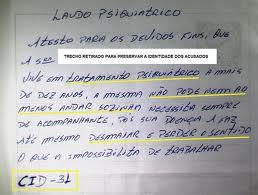 LAUDO PSIQUIATRICO
ATESTO PARA OS DEVIDOS FINS, QUE
A SRA
TRECHO RETIRADO PARA PRESERVAR A IDENTIDADE DOS ACUSADOS
VIVE EM TRATAMENTO PSIQUIÁTRICO A MAIS
DE DEZ ANOS, A MESMA NÃO PODE NEM AO
MENOS ANDAR SOZINHA NECESSITA SEMPRE
DE ACOMPANHANTE, POIS SUA DOENÇA A FAZ
ATÉ MESMO DESMAIAR E PERDER O SENTIDO
O QUE A IMPOSSIBILITA DE TRABALHAR
CID-31